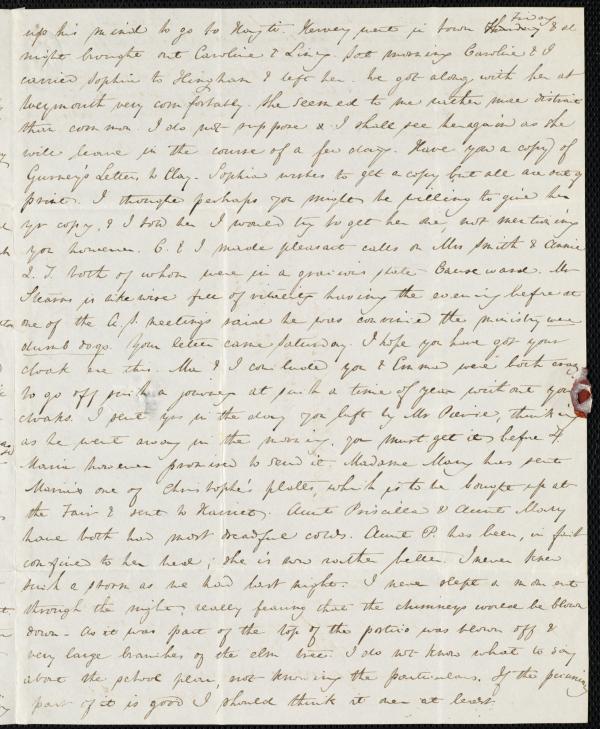 up his mind to go to Hayti. Hervey went in town Thursday Friday & at
night brought out Caroline & Lucy. Sat morning Caroline & I
carried Sophia to Hingham & left her. We got along with her at
Weymouth very comfortably. She seemed to me rather more distrait
than common. I do not suppose I shall see her again as she
will leave in the course of a few days. Have you a copy of
Gurney's Letters to Clay. Sophia wishes to get a copy but all are out of
print. I thought perhaps you might be willing to give her
yr copy, & I told her I would try to get her one, not mentioning
you however. C. & I made pleasant calls on Mrs Smith & Annie
L. T. both of whom were in a gracious state - Cause ward. Mr
Stearns is likewise free of having the evening before at
one of the A. S. meetings said he was convinced the ministry were
dumb dogs. Your letter came Saturday. I hope you have got your
cloak ere this. Ma & I conclude you & Emma were both crazy
to go off such a journey at such a time of year without your
cloaks. I sent yrs in the day you left by Mr Pierce, thinking
as he went away in the morning, you must get it before 4
Maria however promised to send it. Madame Mary has sent
Maria one of Christophe's plates, which is to be bought up at
the Fair & sent to Harriet. Aunt Priscilla & Aunt Mary
have both had most dreadful colds. Aunt P. has been, in fact
confined to her bed; she is now rather better. I never knew
such a storm as we had last night. I never slept a moment
through the night, really fearing that the chimneys would be blown
down - As it was part of the top of the portico was blown off &
very large branches of the elm tree. I do not know what to say
about the school plan, not knowing the particulars. If the pecuniary
part of it is good I should think it over at least